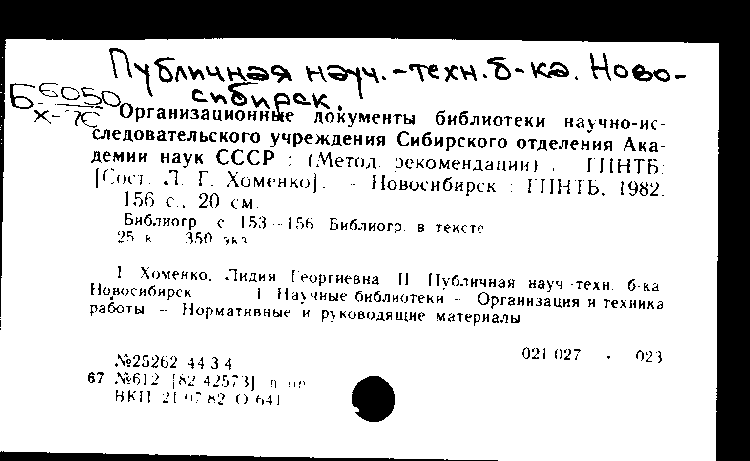 Публичная науч.-техн. б-ка. Ново-
сибирск.
Б 6050
х-76
Организационные документы библиотеки научно-ис-
следовательского учреждения Сибирского отделения Ака-
демии наук СССР : (Метод. рекомендации) . ГПНТБ;
[Сост. Л. Г. Хоменко]. - Новосибирск : ГПНТБ, 1982.
156 с., 20 см.
Библиогр. с 153-156 Библиогр. в тексте
25 к 350 экз
I Хоменко, Лидия Георгиевна II Публичная науч-техн. б-ка
Новосибирск 1 Научные библиотеки - Организация и техника
работы - Нормативные и руководящие материалы
021 027 · 023
№25262 44 3 4
67 №612 [82 42573] п
ВКП 21 07 82 О 641